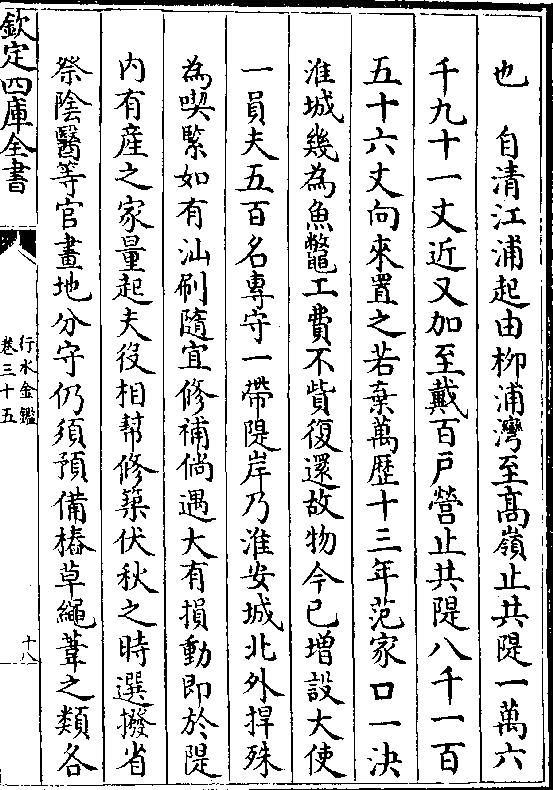 也　自清江浦起由柳浦灣至高嶺止共隄一萬六
千九十一丈近又加至戴百戶營止共隄八千一百
五十六丈向來置之若棄萬歷十三年范家口一決
淮城幾為魚鼈工費不貲復還故物今已增設大使
一員夫五百名專守一帶隄岸乃淮安城北外捍殊
為喫緊如有汕刷隨宜修補倘遇大有損動即於隄
内有產之家量起夫役相幫修築伏秋之時選撥省
祭陰醫等官畫地分守仍須預備樁草繩葦之類各
欽定四庫全書
行水金鑑
卷三十五
十八